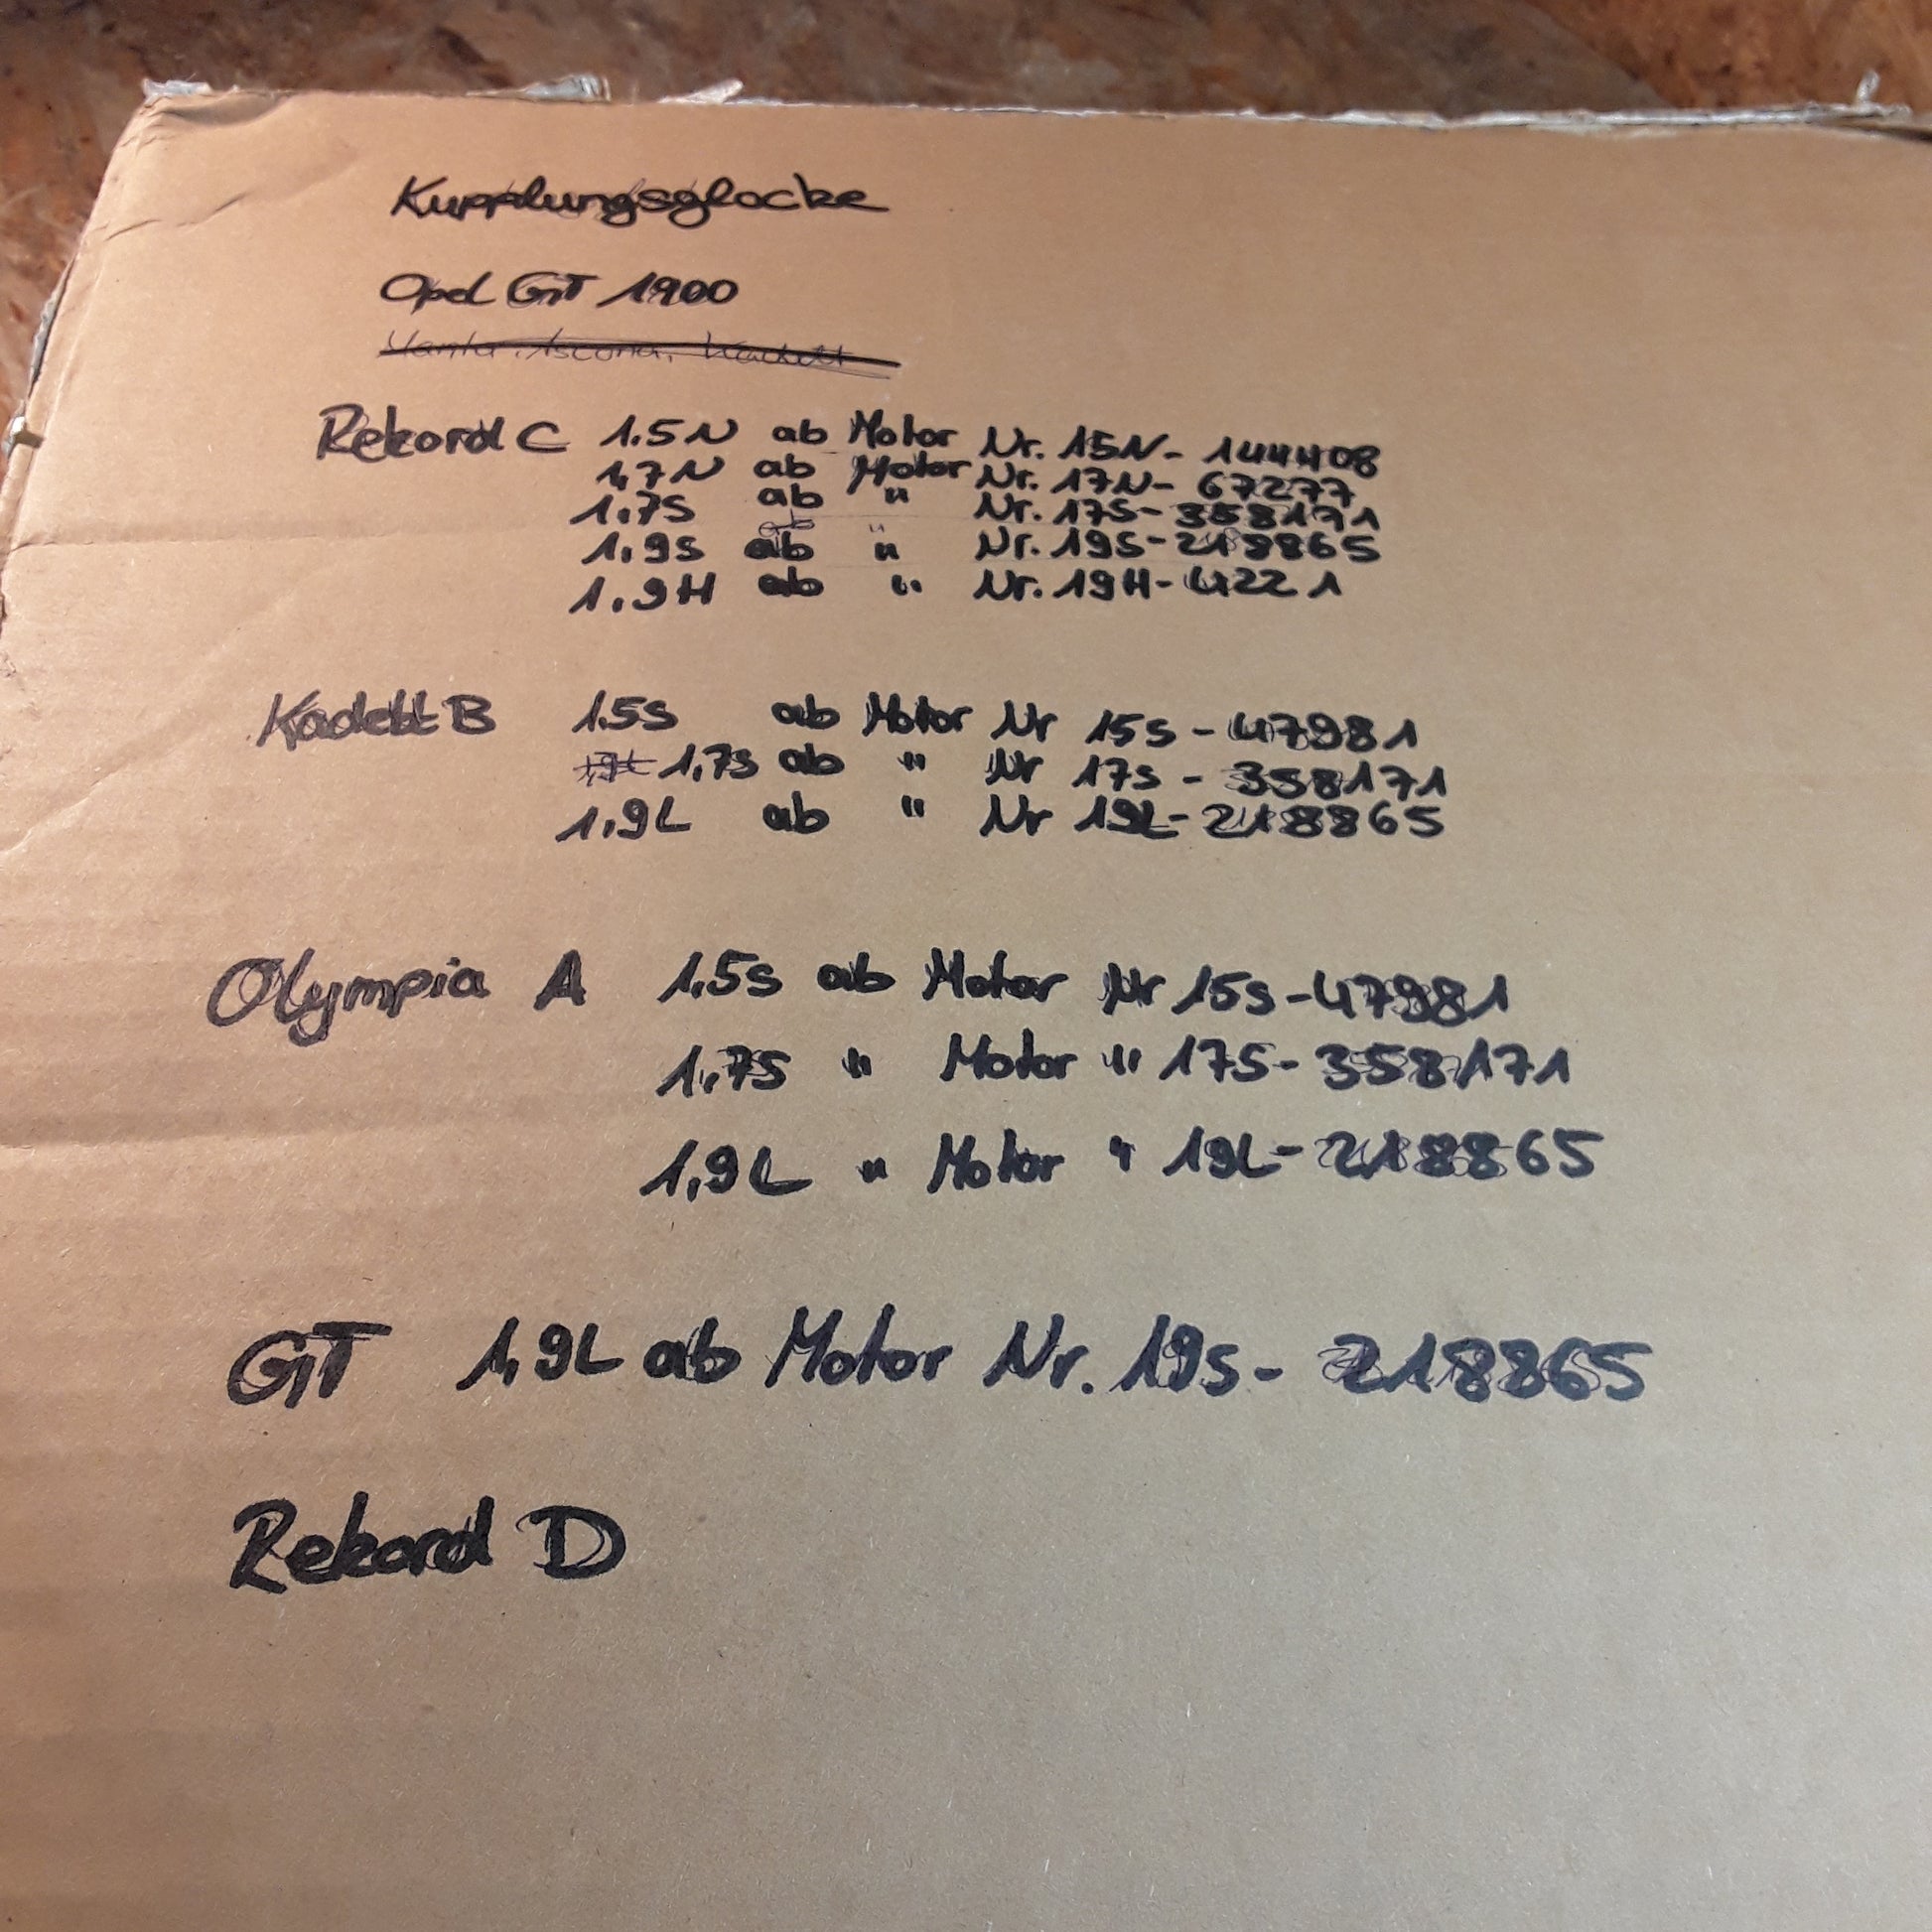 Kupplungsglocke
Opel GT 1900
Manta, Ascona, Kadett
Rekord C 1.5N ab Motor Nr. 15N- 144408
1,7N ab Motor Nr. 17N- 67277
1,7S ab " Nr. 17S- 358171
1,9S ab " Nr. 19S- 218865
1,9H ab " Nr. 19H- 4221
Kadett B 1.5S ab Motor Nr 15S - 47981
1,7S ab " Nr 17S - 358171
1,9L ab " Nr 19L- 218865
Olympia A 1,5S ab Motor Nr 15S-47981
1,7S " Motor " 17S- 358171
1,9L " Motor " 19L- 218865
GT 1,9L ab Motor Nr. 19S- 218865
Rekord D